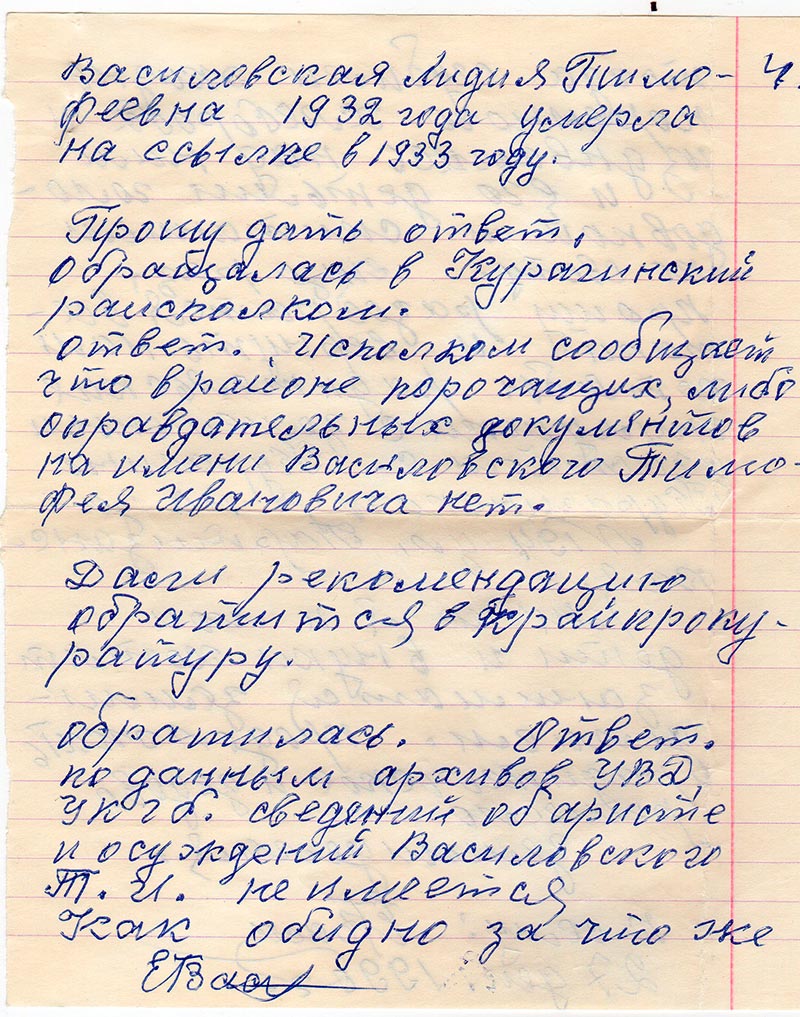 Василовская Лидия Тимо- 4.
феевна 1932 года умерла
на ссылке в 1933 году.
Прошу дать ответ,
обращалась в Курагинский
райсполком.
ответ. Исполком сообщает
что в районе порочащих, либо
оправдательных документов
на имени Василовского Тимо-
фея Ивановича нет.
Дали рекомендацию
обратится в Крайпроку-
ратуру.
обратилась. Ответ.
по данным архивов УВД,
УКГб. сведений об аристе
и осуждений Василовского
Т. И. не имеется
Как обидно за что же
ЕВас